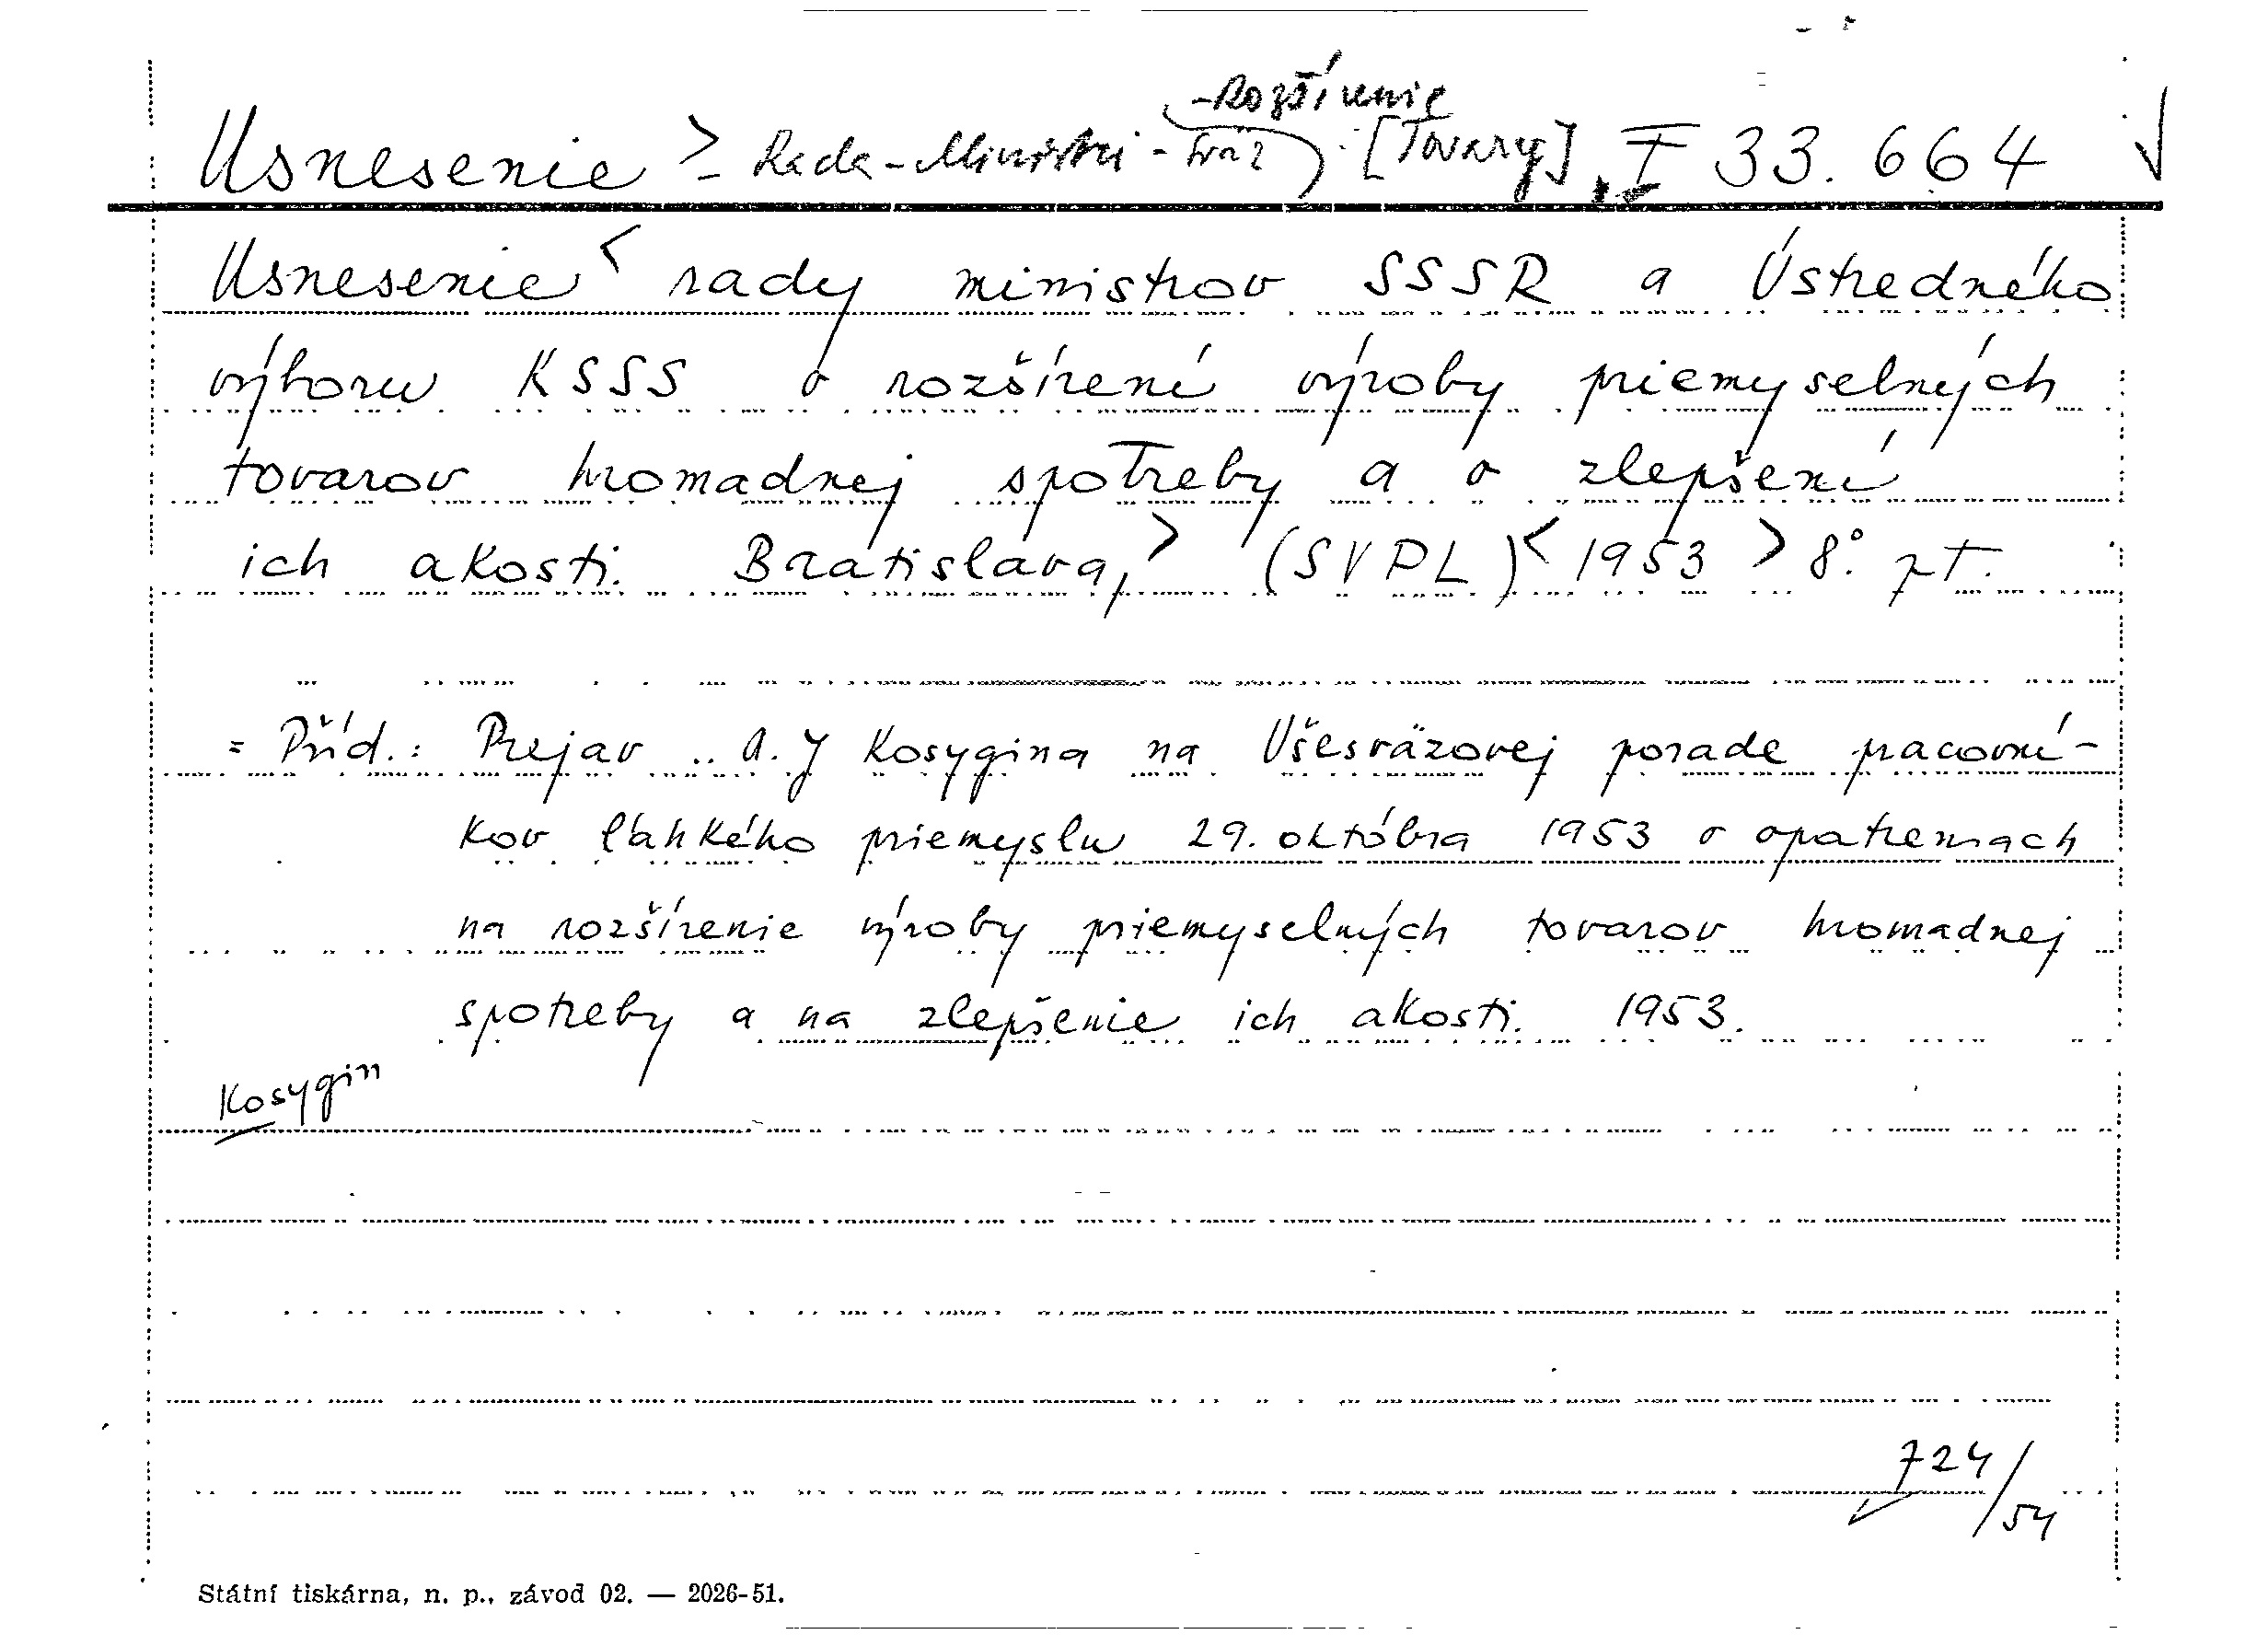 -Rozšírenie
Usnesenie > - Rada-Ministri - Sväz [Tovary] I 33.664
Usnesenie < rady ministrov SSSR a Ústredného
výboru KSSS o rozšírení výroby priemyselných
tovarov hromadnej spotreby a o zlepšení
ich akosti. Bratislava, > (SVPL) < 1953 > 8°. pt.
= Příd.: Prejav .. A. J Kosygina na Všesväzovej porade pracovní-
kov ľahkého priemyslu 29. októbra 1953 o opatreniach
na rozšírenie výroby priemyselných tovarov hromadnej
spotreby a na zlepšenie ich akosti. 1953.
Kosygin
724/54
Státní tiskárna, n. p., závod 02. — 2026-51.